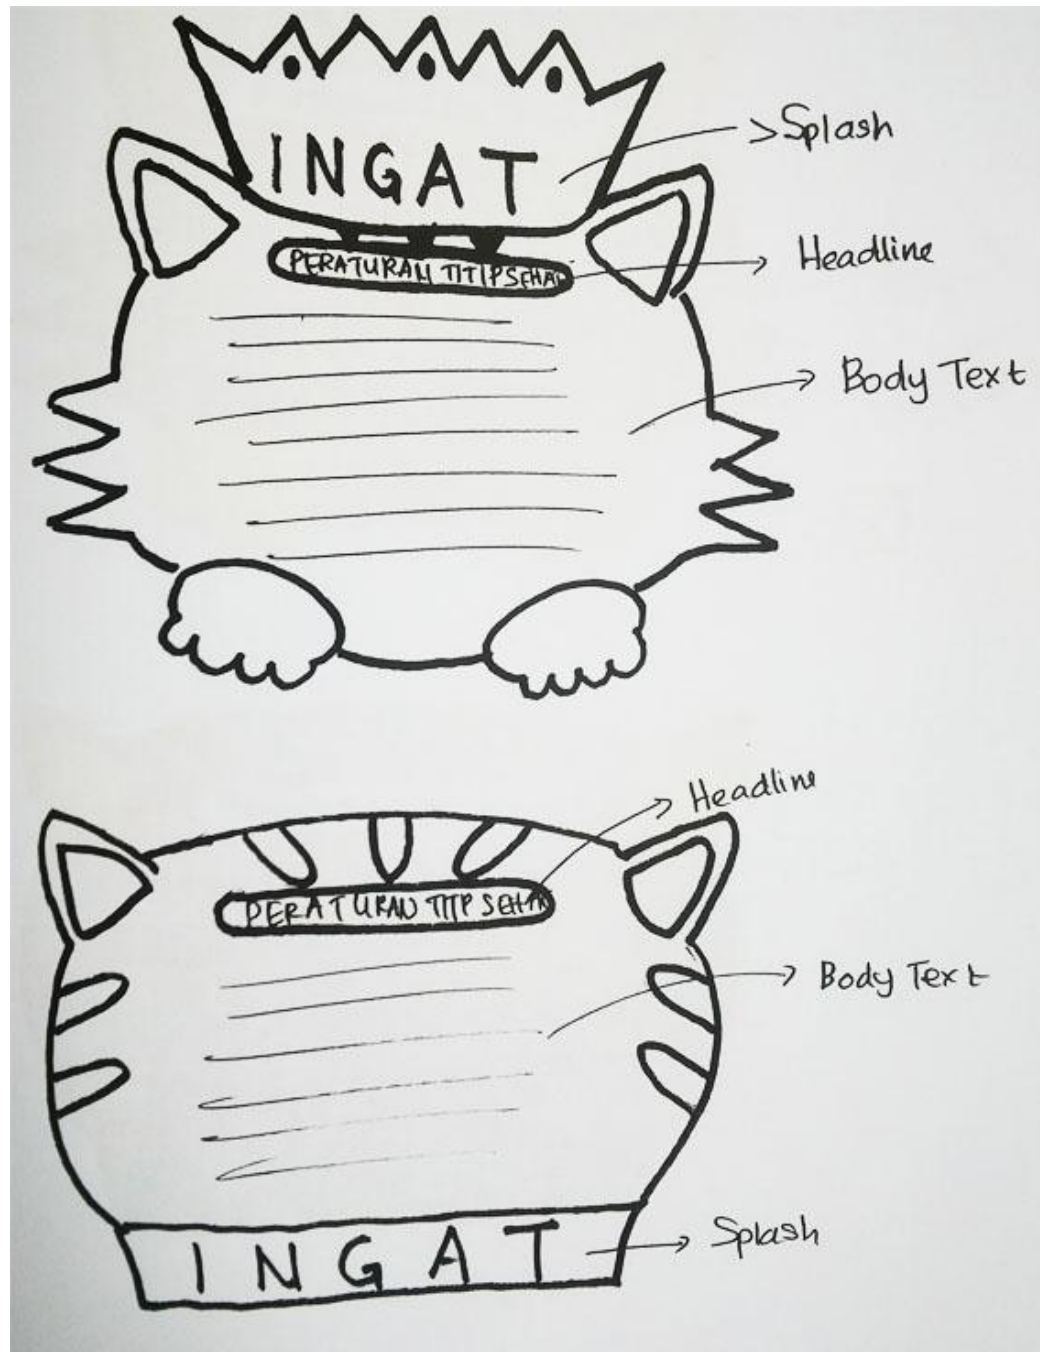 INGAT
Splash
PERATURAN TITIP SEHA
Headline
Body Text
Headline
PERATURAN TITIP SEHA
Body Text
INGAT
Splash